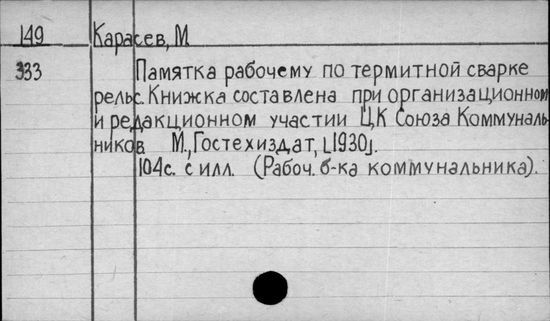 149 Карасев, М
333 Памятка рабочему по термитной сварке
рельс. Книжка составлена при организационном
и редакционном участии Ц.К Союза Коммуналь-
ников М., Гостехиздат, [1930].
104с. с илл. (Рабоч. б-ка коммунальника).